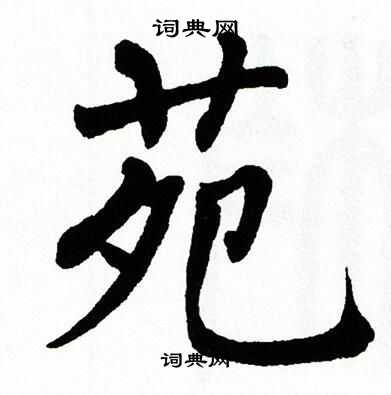 词典网
苑
词典网